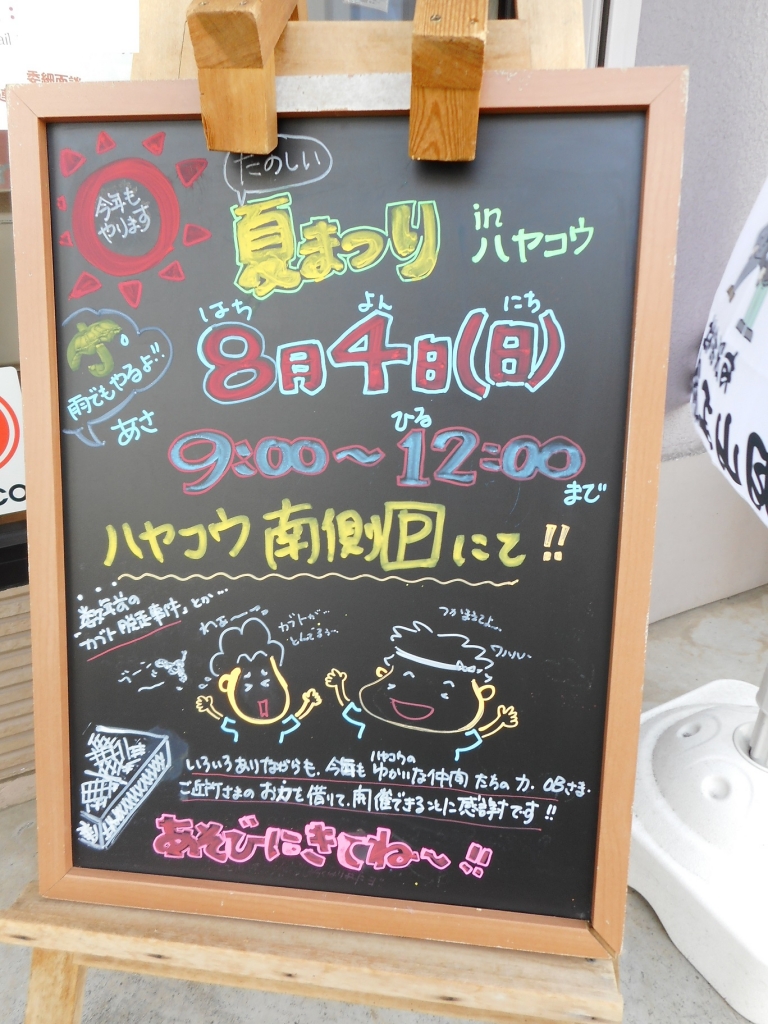 たのしい
今年も
やります
夏まつり
in
ハヤコウ
はち よん にち
8月4日(日)
雨でもやるよ!!
あさ
ひる
9:00～12:00
まで
ハヤコウ 南側P にて!!
数年前の
「カブト脱走事件」とか…
わぁー
カブトが…
とんでるぅ…
つかまえてよ…
ワハハハ
いろいろありながらも、今年も ハヤコウの ゆかいな仲間 たちの力、OBさま、
ご近所さまの お力を借りて、開催できることに感謝です!!
あそびにきてね～!!